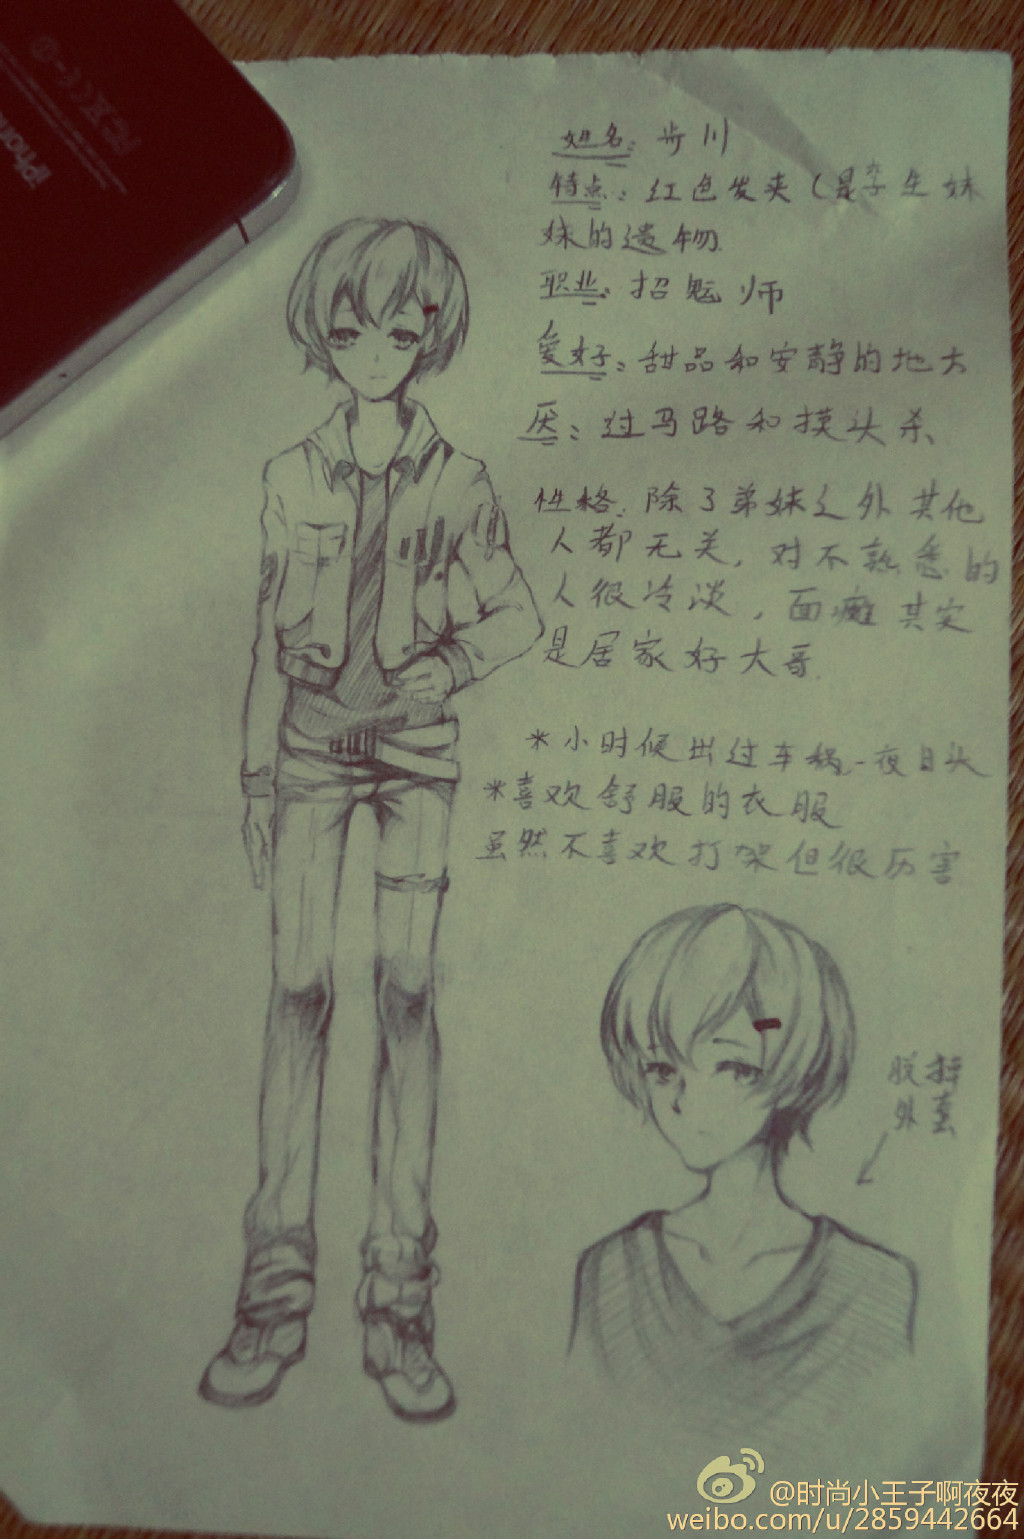 iPhone
姓名：步川
特点：红色发夹（是孪生妹
妹的遗物
职业：招鬼师
爱好：甜品和安静的地方
厌：过马路和摸头杀
性格：除了弟妹之外其他
人都无关，对不熟悉的
人很冷淡，面瘫其实
是居家好大哥
*小时候出过车祸，一夜白头
*喜欢舒服的衣服
虽然不喜欢打架但很厉害
脱掉
外套
@时尚小王子啊夜夜
weibo.com/u/2859442664